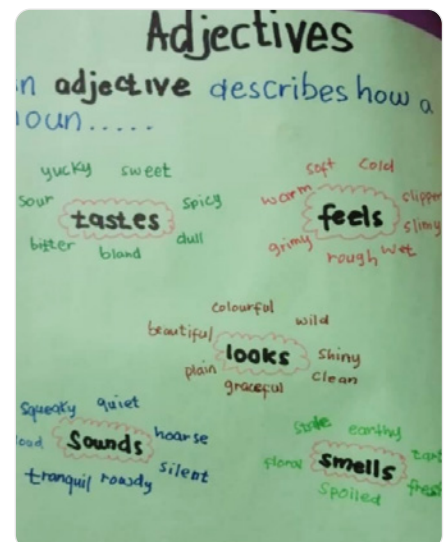 Adjectives
n adjective describes how a
noun.....
yucky sweet
sour spicy
tastes
bitter bland dull
soft cold
warm slipper
feels slimy
grimy rough wet
colourful wild
beautiful
looks shiny
plain graceful clean
squeaky quiet
hoarse
Sounds
tranquil rowdy silent
stale earthy
tart
floral smells
spoiled fresh